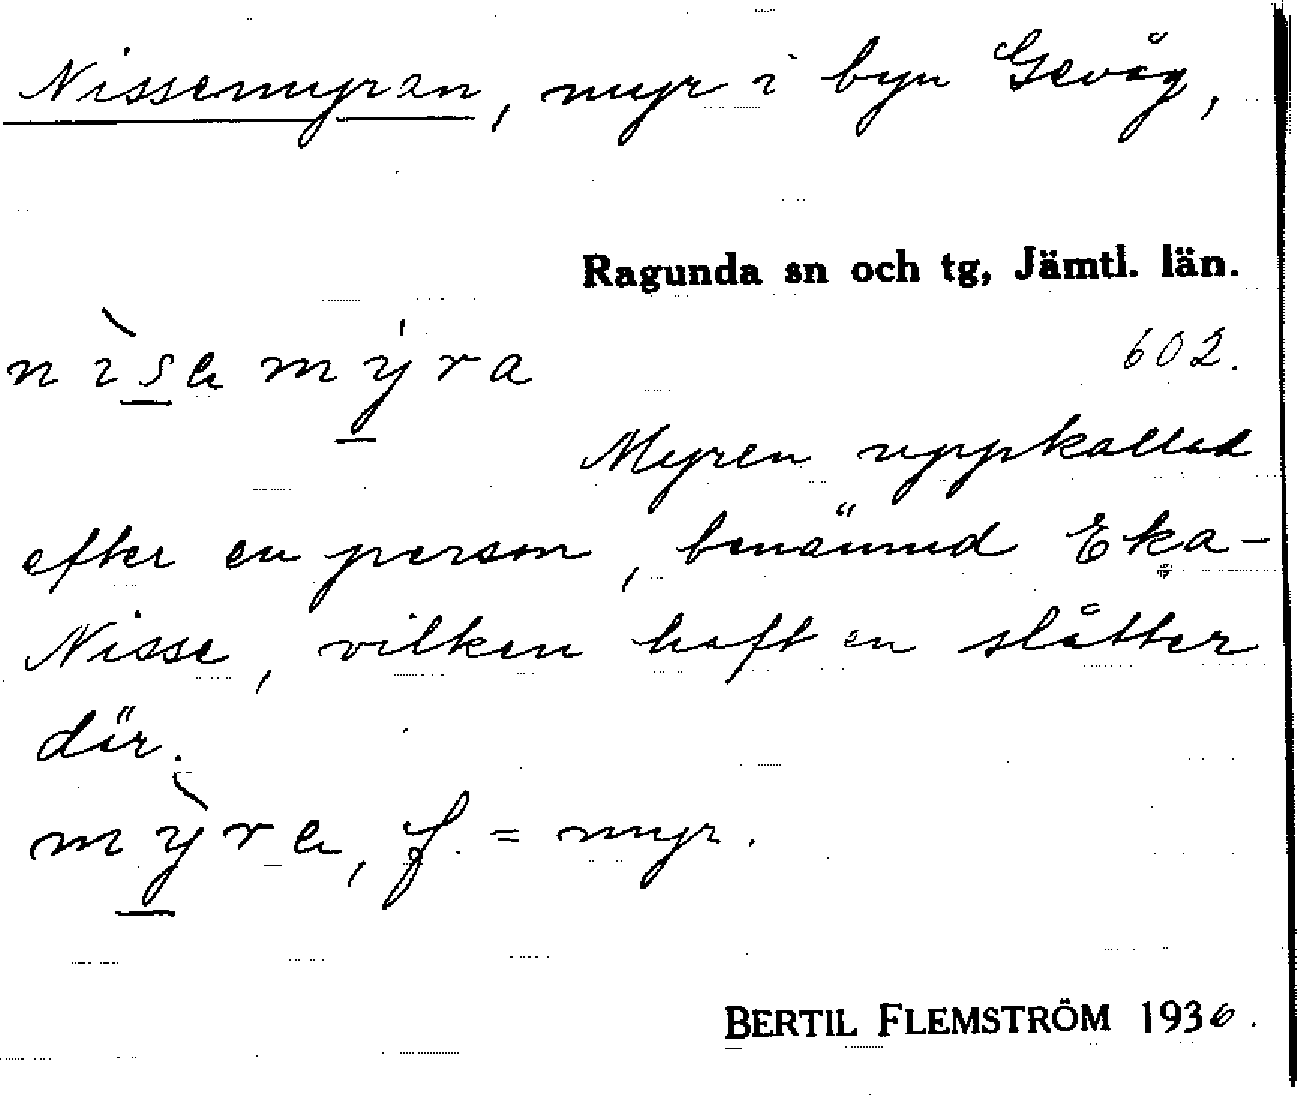 Nissemyran, myr i byn Gevåg,
Ragunda sn och tg, Jämtl. län.
nìsa mýra
602.
Myren uppkallad
efter en person, benämnd Eka-
Nisse, vilken haft en slåtter
där.
mỳra, f. = myr.
BERTIL FLEMSTRÖM 1936.